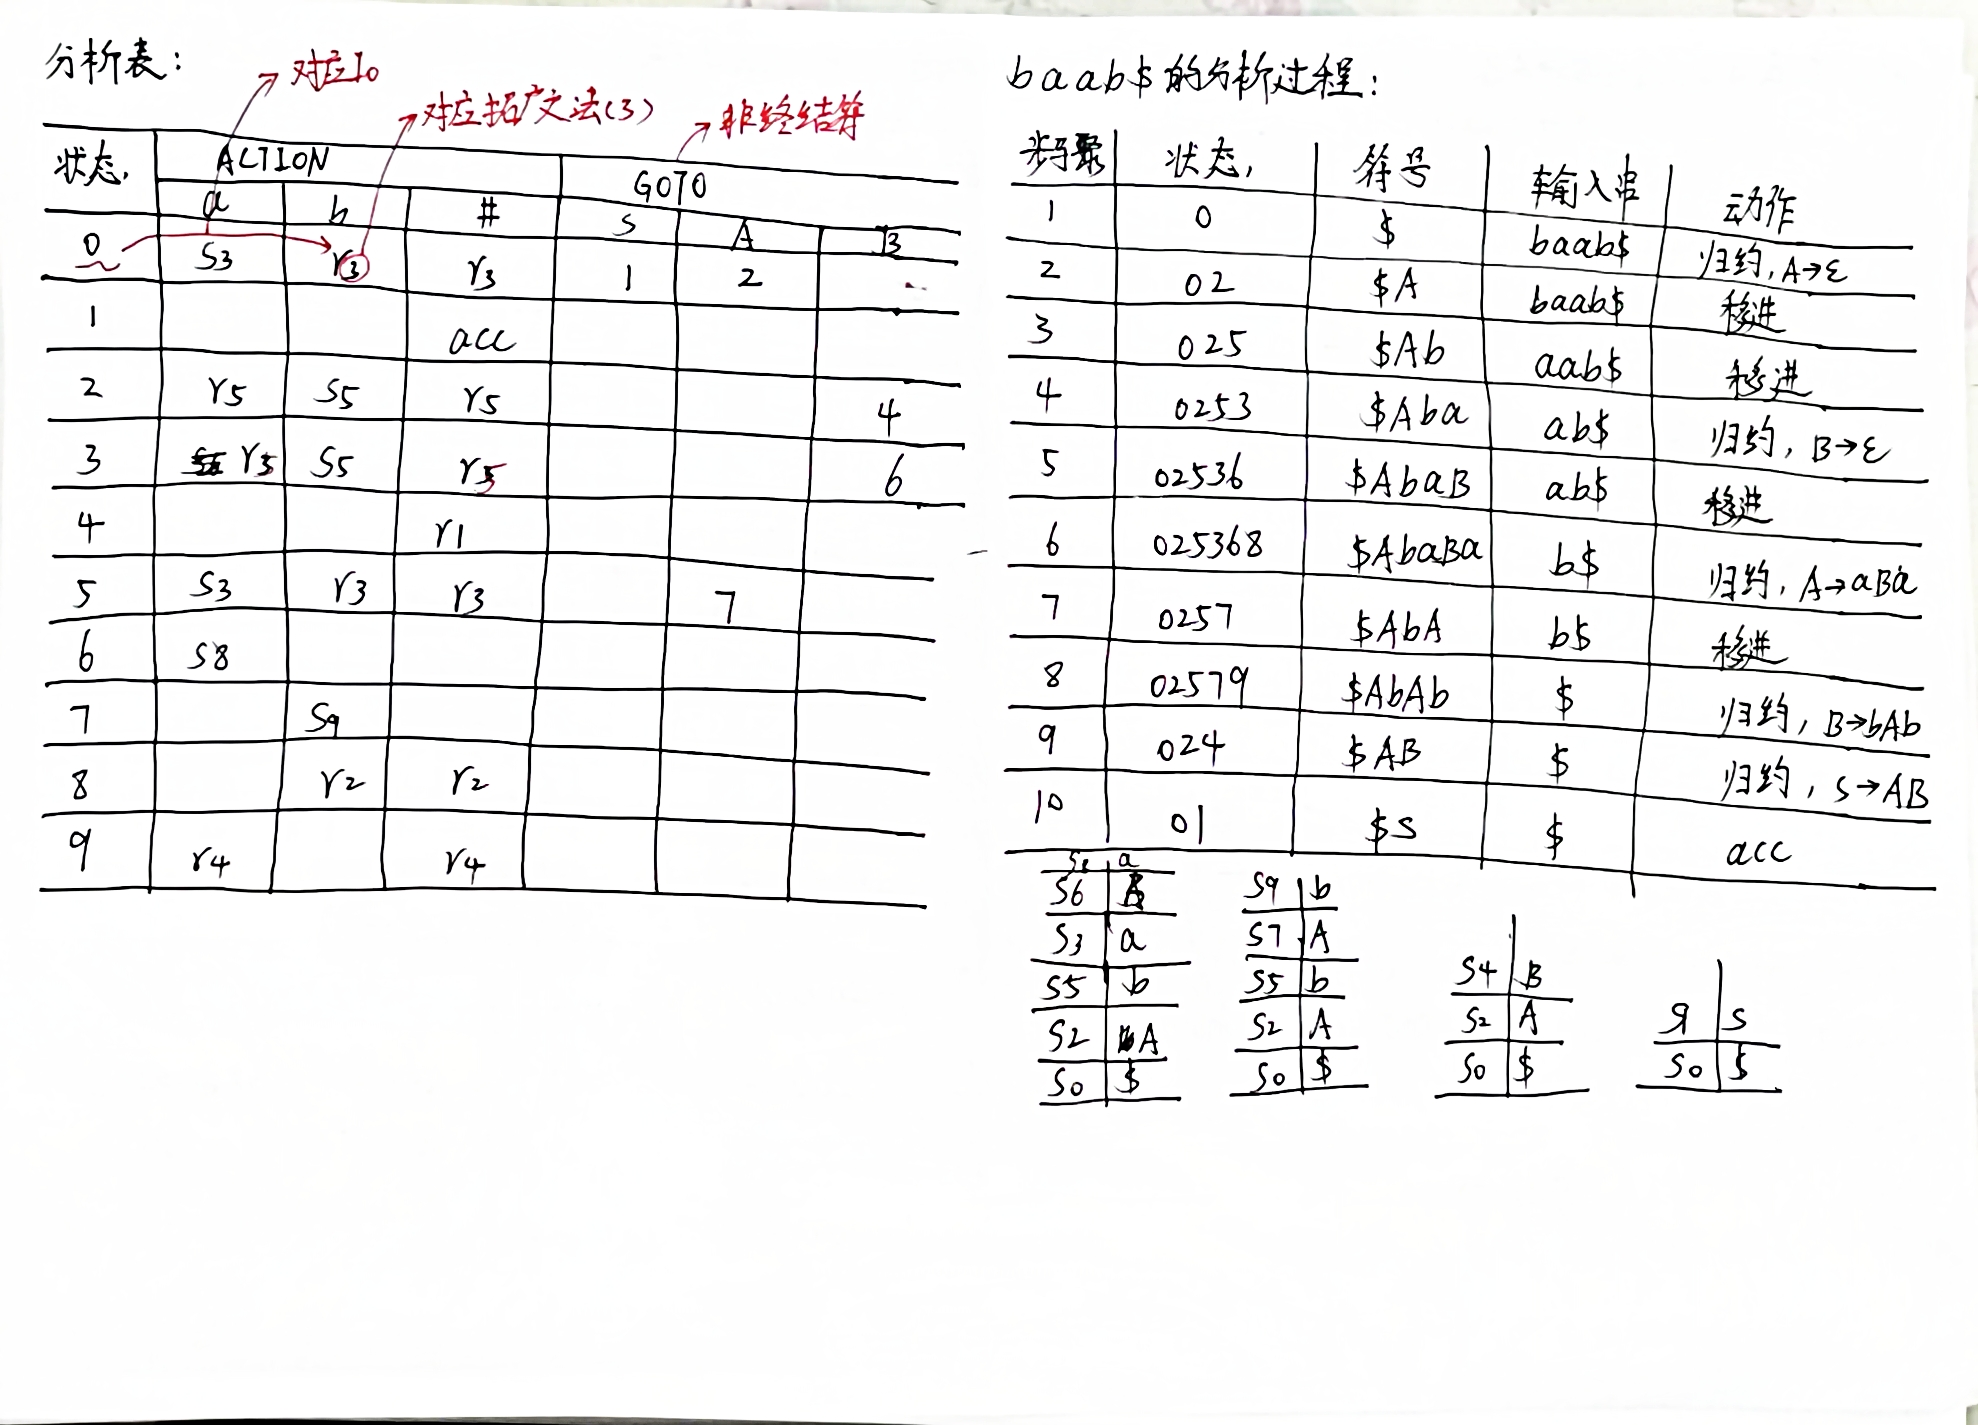 分析表：
对应I0
对应拓广文法(3)
非终结符
状态, ACTION GOTO
a b # S A B
0 S3 r3 r3 1 2
1 acc
2 r5 S5 r5 4
3 r5 S5 r5 6
4 r1
5 S3 r3 r3 7
6 S8
7 S9
8 r2 r2
9 r4 r4
baab$的分析过程：
步骤 状态, 符号 输入串 动作
1 0 $ baab$ 归约, A→ε
2 02 $A baab$ 移进
3 025 $Ab aab$ 移进
4 0253 $Aba ab$ 归约, B→ε
5 02536 $AbaB ab$ 移进
6 025368 $AbaBa b$ 归约, A→aBa
7 0257 $AbA b$ 移进
8 02579 $AbAb $ 归约, B→bAb
9 024 $AB $ 归约, S→AB
10 01 $S $ acc
S8 a
S6 B
S3 a
S5 b
S2 A
S0 $
S9 b
S7 A
S5 b
S2 A
S0 $
S4 B
S2 A
S0 $
S1 S
S0 $